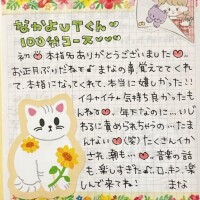 なかよUTくん
100分コース
初♡本指名ありがとうございました♡
お正月ぶりだね♡まなの事、覚えててくれ
て、本指になってくれて、本当に嬉しかった!!
イチャイチャも気持ち良かったも
んねる♡年下なのに…いじ
わるに責められちゃうの…たま
んない♡(笑)たくさんイかさ
され、潮も…♡音楽の話
も、楽しすぎたよ ロッキン、楽
しんで来てね! まな